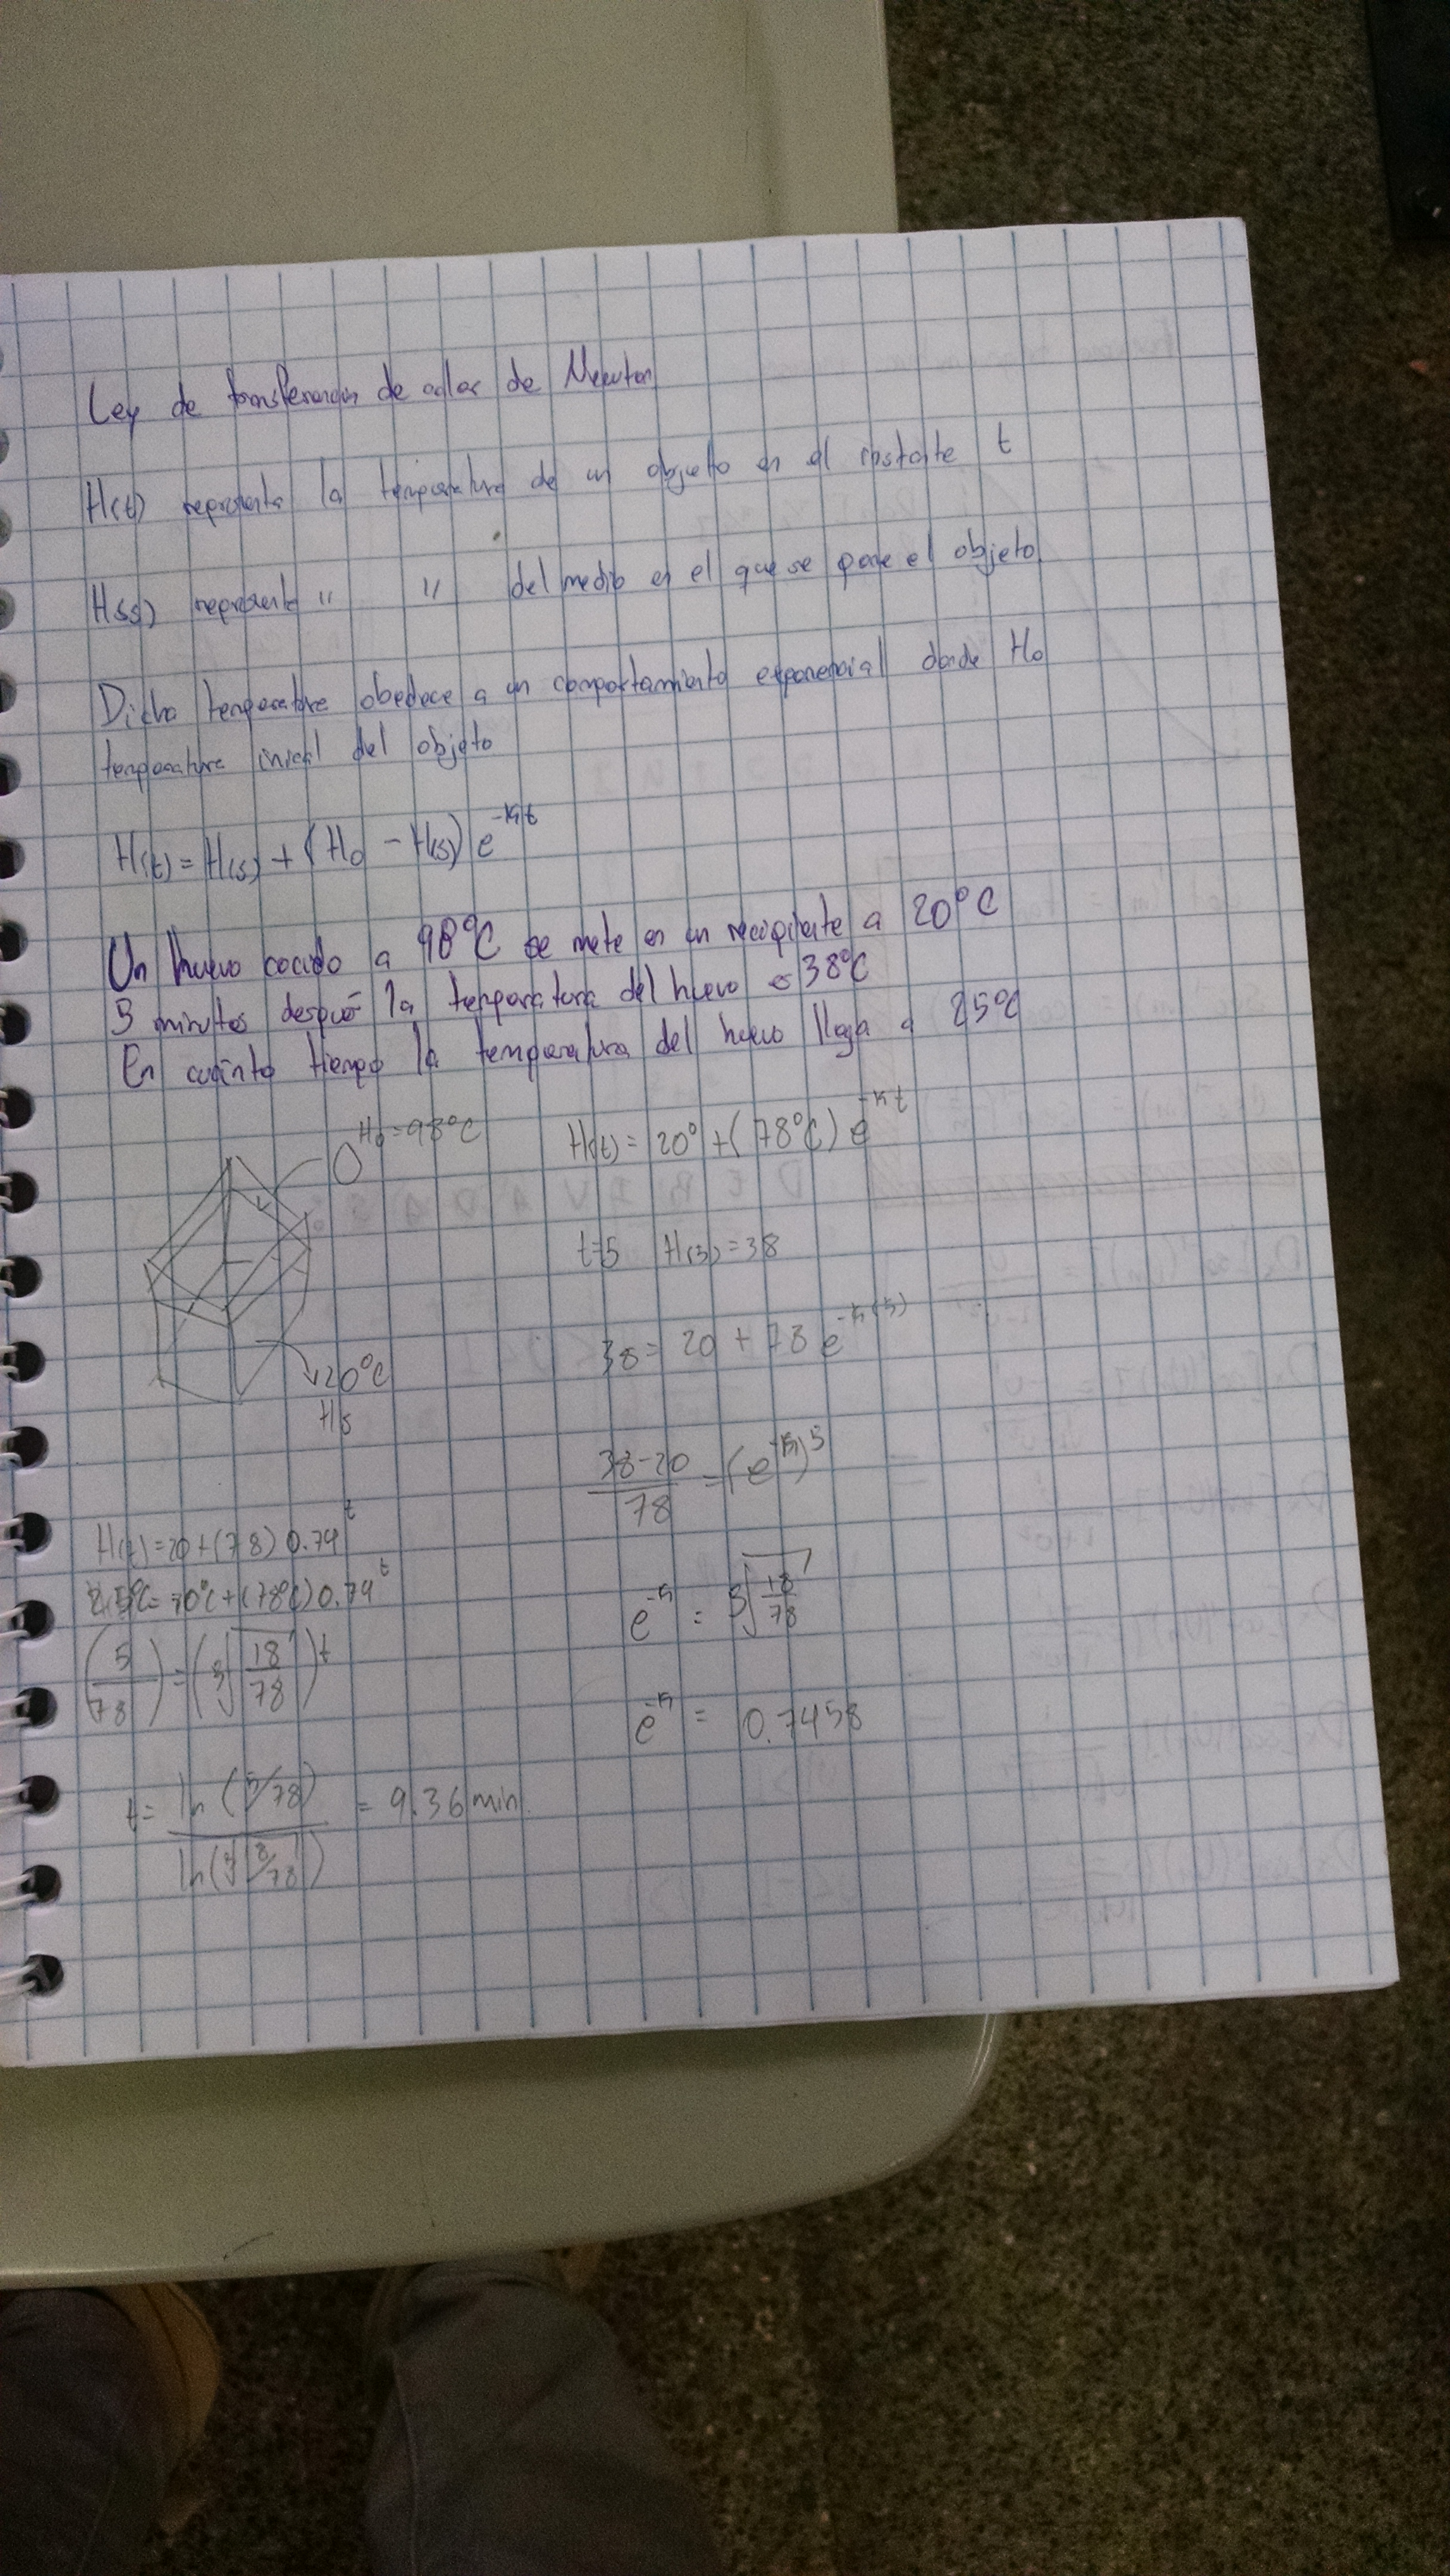 Ley de transferencia de calor de Newton
H(t) representa la temperatura de un objeto en el instante t
H(s) representa " " del medio en el que se pone el objeto
Dicha temperatura obedece a un comportamiento exponencial donde H₀
temperatura inicial del objeto
H(t) = H(s) + (H₀ - H(s)) e^-kt
Un huevo cocido a 98°C se mete en un recipiente a 20°C
5 minutos después la temperatura del huevo es 38°C
En cuánto tiempo la temperatura del huevo llega a 25°C
H₀ = 98°C
20°C
Hs
H(t) = 20° + (78°C) e^-kt
t=5 H(5) = 38
38 = 20 + 78 e^-k(5)
38-20/78 = (e^-k)^5
e^-k = ⁵√18/78
e^-k = 0.7458
H(t) = 20 + (78) 0.74^t
25°C = 20°C + (78°C) 0.74^t
(5/78) = (⁵√18/78)^t
t = ln(5/78)/ln(⁵√18/78) = 9.36 min